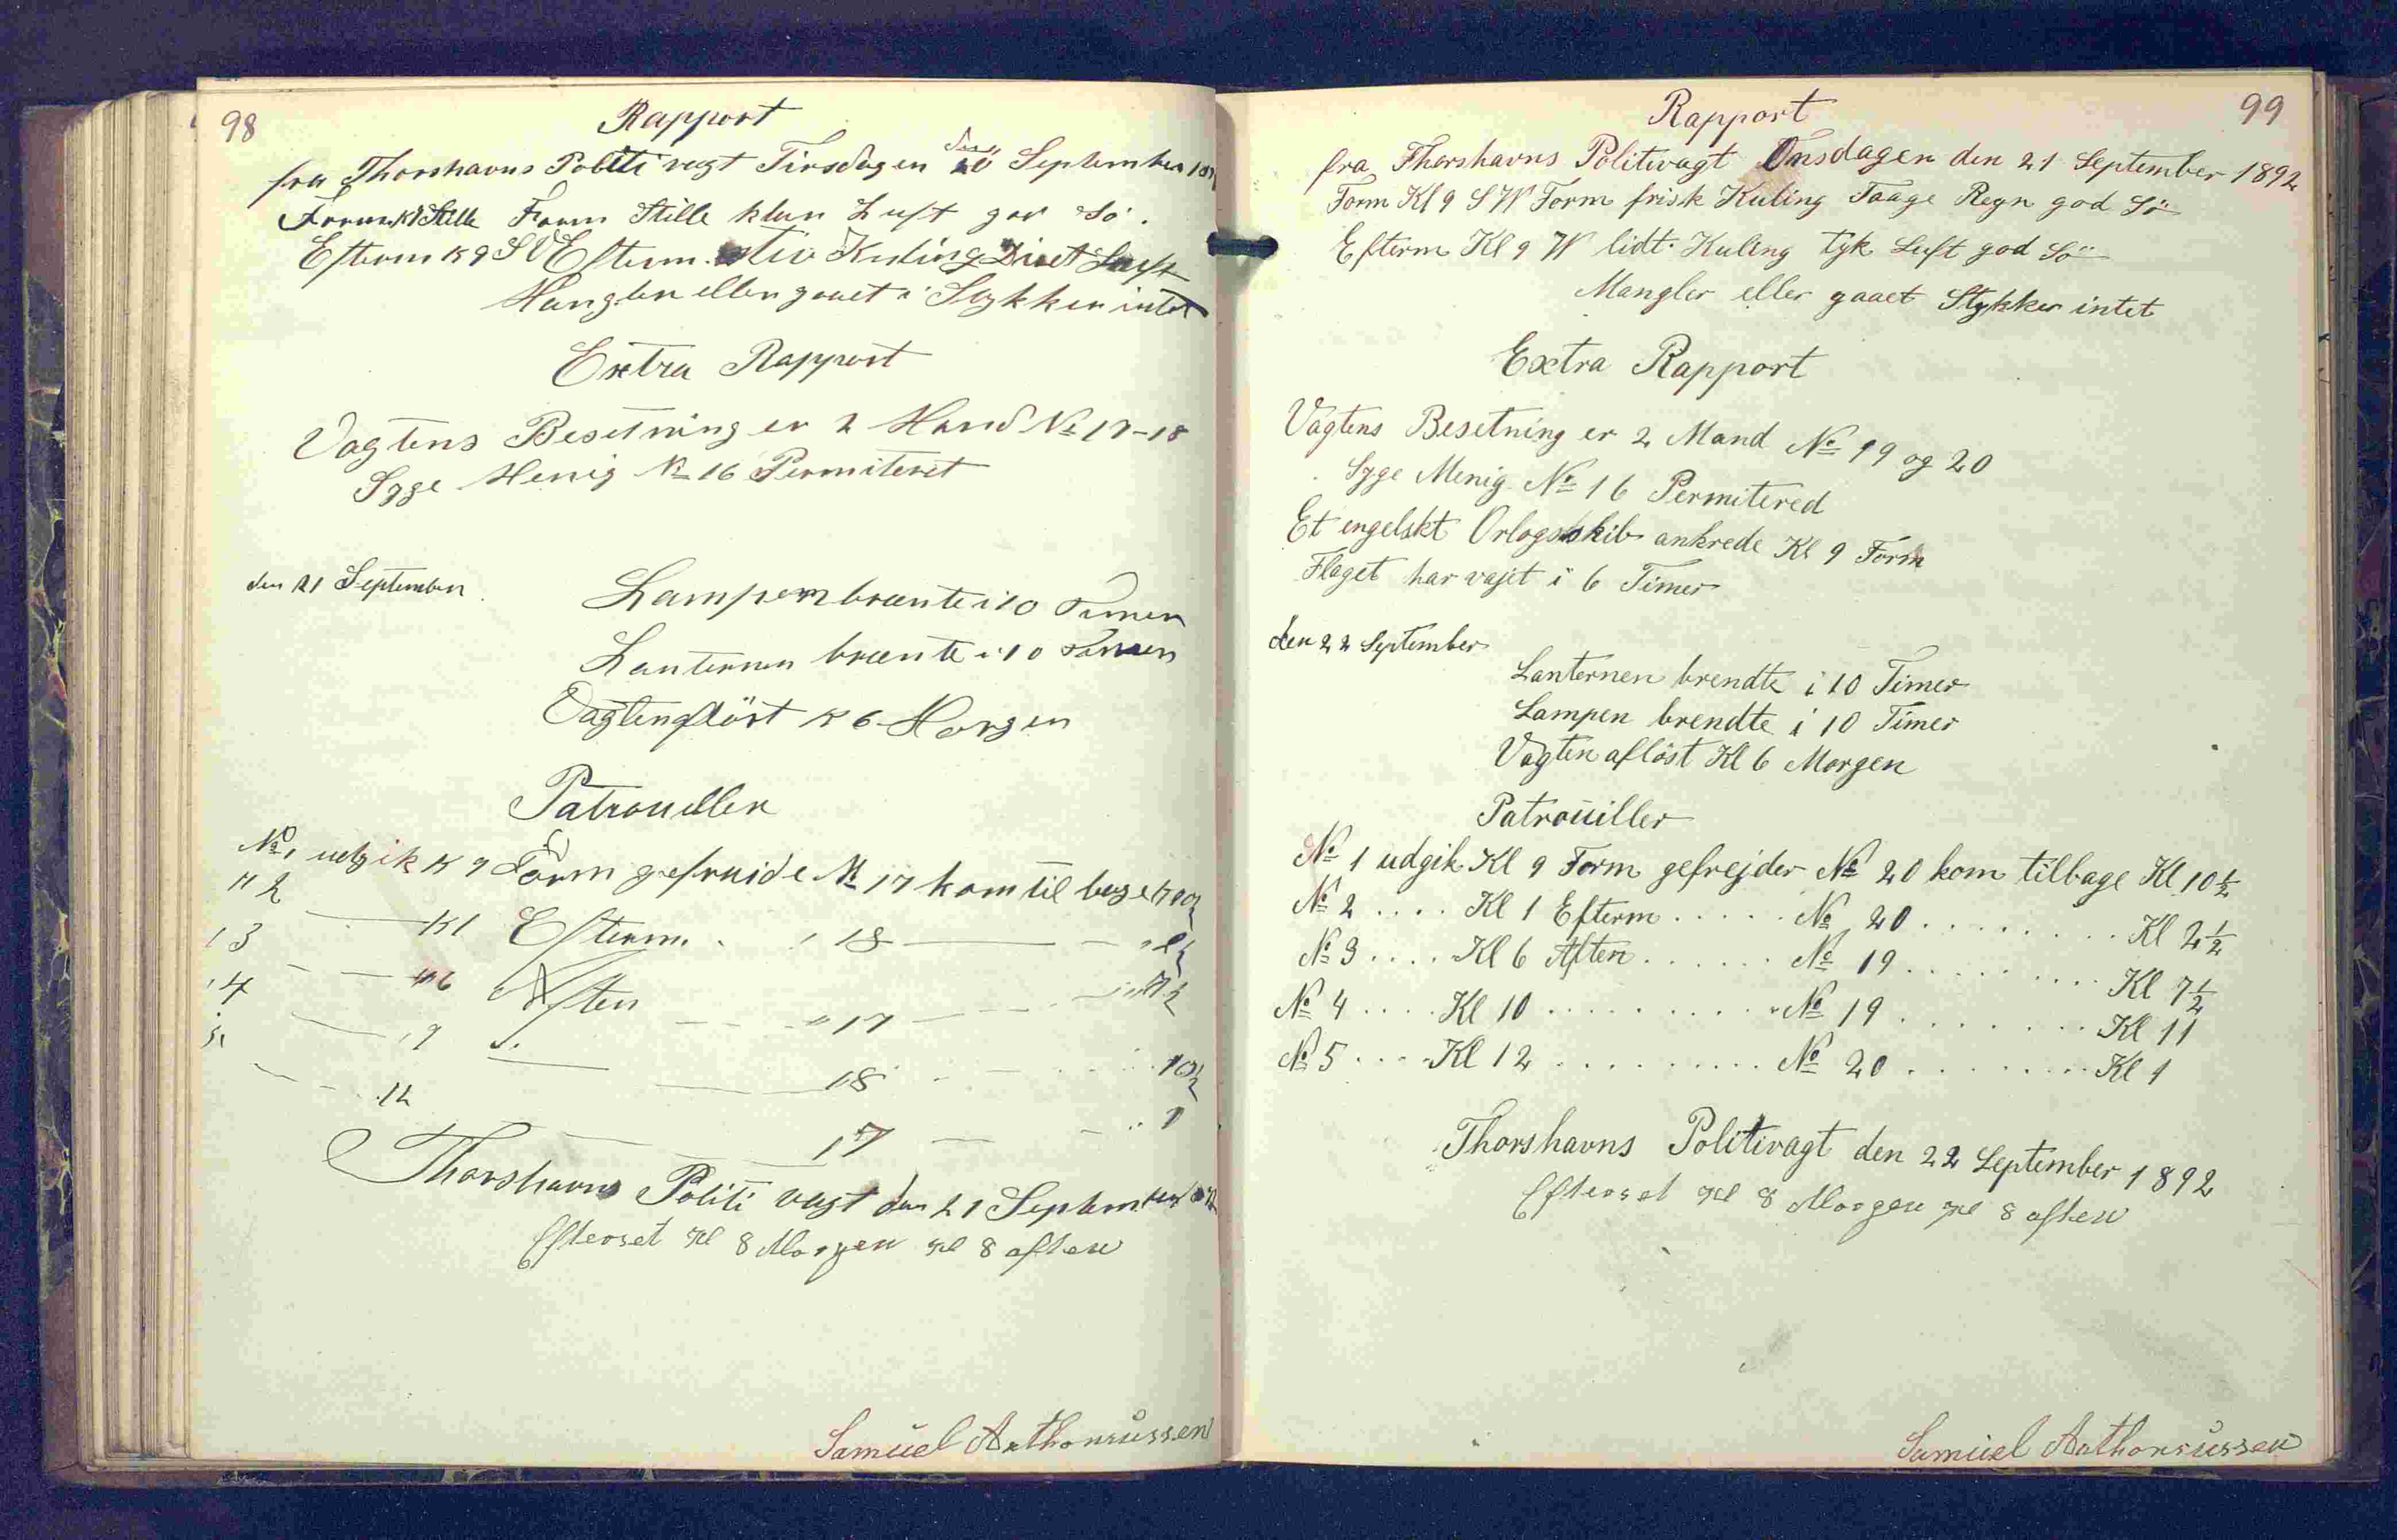 98
Rapport
fra Thorshavns Politi vagt Tirsdagen den 20 September
Form Kl Stille Form Stille klar Luft god Sö.
Efterm K 9 SV Efterm. stiv Kuling Luft
Mangler eller gaaet i Stykker intet
Extra Rapport
Vagtens Besetning er 2 Mand № 17-18
Syge Menig № 16 Permiteret
den 21 September
Lampen brænte i 10 Timer
Lanternen brænte i 10 Timer
Vagten aflöst K 6 Morgen
Patrouiller
№ 1 udgik K 9 Form gefreide № 17 kom tilbage K 10½
" 2 — K 1 Efterm. " 18 — " 2½
" 3 — " 6 Aften — " 17 — " 7½
" 4 — " 9 " — 18 — 10½
" 5 — " 12 — 17 — " 1
Thorshavns Politi vagt den 21 September
Efterset Kl 8 Morgen Kl 8 aften
Samuel Anthoniussen
99
Rapport
fra Thorshavns Politivagt Onsdagen den 21 September 1892
Form Kl 9 S W Form frisk Kuling Taage Regn god Sö
Efterm Kl 9 W lidt Kuling tyk Luft god Sö
Mangler eller gaaet Stykker intet
Extra Rapport
Vagtens Besetning er 2 Mand № 19 og 20
Syge Menig № 16 Permitered
Et engelskt Orlogsskib ankrede Kl 9 Form
Flaget har vajet i 6 Timer
den 22 September
Lanternen brendte i 10 Timer
Lampen brendte i 10 Timer
Vagten aflöst Kl 6 Morgen
Patrouiller
№ 1 udgik Kl 9 Form gefrejder № 20 kom tilbage Kl 10½
№ 2 .... Kl 1 Efterm ..... № 20 ......... Kl 2½
№ 3 .... Kl 6 Aften ...... № 19 ......... Kl 7½
№ 4 .... Kl 10 .......... № 19 ........ Kl 11
№ 5 .... Kl 12 .......... № 20 ........ Kl 1
Thorshavns Politivagt den 22 September 1892
Efterset Kl 8 Morgen Kl 8 aften
Samuel Anthoniussen